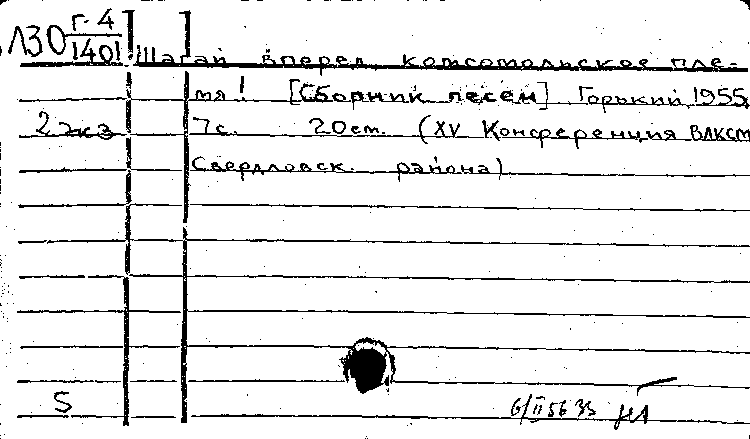 Л30 Г-4
1401
Шагай вперед, комсомольское пле-
мя! [Сборник песен] Горький, 1955
2 экз 7с. 20см. (XV Конференция ВЛКСМ
Свердловск. района)
5
6/II 56